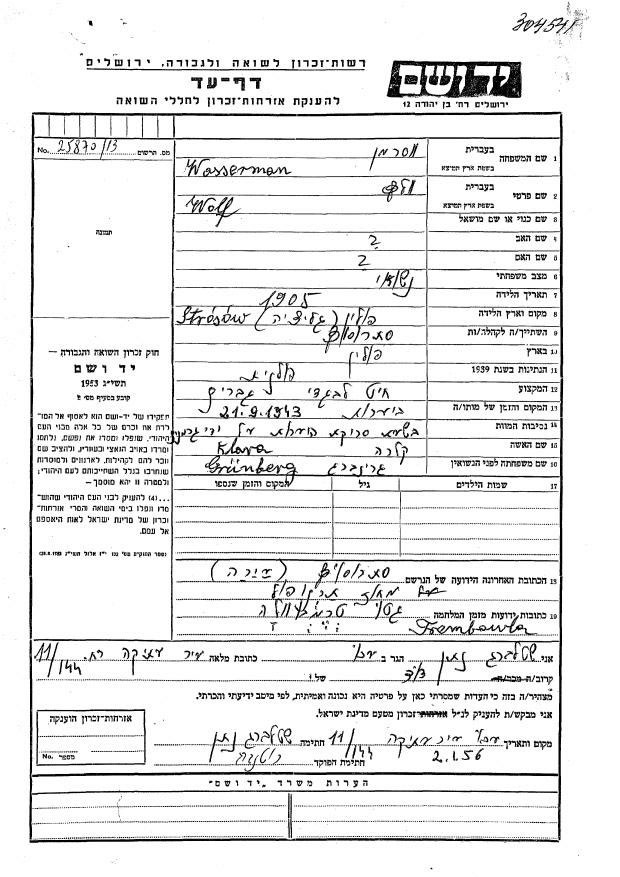 304541
רשות-זכרון לשואה ולגבורה, ירושלים
דף-עד
להענקת אזרחות-זכרון לחללי השואה
יד ושם
ירושלים רח' בן יהודה 12
No. 25870/13 מס. הרשום
תמונה
חוק זכרון השואה והגבורה —
יד ושם
תשי"ג 1953
קובע בסעיף מס' 2
תפקידו של יד-ושם הוא לאסוף אל המו-
לדת את זכרם של כל אלה מבני העם
היהודי, שנפלו ומסרו את נפשם, נלחמו
ומרדו באויב הנאצי ובעוזריו, ולהציב שם
וזכר להם, לקהילות, לארגונים ולמוסדות
שנחרבו בגלל השתייכותם לעם היהודי;
ולמטרה זו יהא מוסמך —
...(4) להעניק לבני העם היהודי שהוש-
מדו ונפלו בימי השואה והמרי אזרחות-
זכרון של מדינת ישראל לאות היאספם
אל עמם.
1 שם המשפחה בעברית וסרמן
בשפת ארץ המוצא Wasserman
2 שם פרטי בעברית וולף
בשפת ארץ המוצא Wolf
3 שם כנוי או שם מושאל
4 שם האב ?
5 שם האם ?
6 מצב משפחתי נשוי
7 תאריך הלידה 1905
8 מקום וארץ הלידה פולין (גליציה) Strósów
9 השתייך/ה לקהלה/ות
10 בארץ פולין
11 הנתינות בשנת 1939 פולנית
12 המקצוע חיט לבגדי גברים
13 המקום והזמן של מותו/ה 21.9.1943
14 נסיבות המוות בשעת סריקה
15 שם האשה קלרה Klara
16 שם משפחתה לפני הנשואין גרינברג Grünberg
17 שמות הילדים גיל המקום והזמן שנספו
18 הכתובת האחרונה הידועה של הנרשם
19 כתובות ידועות מזמן המלחמה גטו טרמבובלה
Trembowla
אני שטלברג נתן הגר ב עכו כתובת מלאה רח. 11/144
קרוב/ה מכר/ה של
מצהיר/ה בזה כי העדות שמסרתי כאן על פרטיה היא נכונה ואמיתית, לפי מיטב ידיעתי והכרתי.
אני מבקש/ת להעניק לנ"ל אזרחות זכרון מטעם מדינת ישראל.
מקום ותאריך עכו 11/144 חתימה שטלברג נתן
2.1.56 חתימת הפוקד
אזרחות-זכרון הוענקה
No. מספר
הערות משרד "יד ושם"